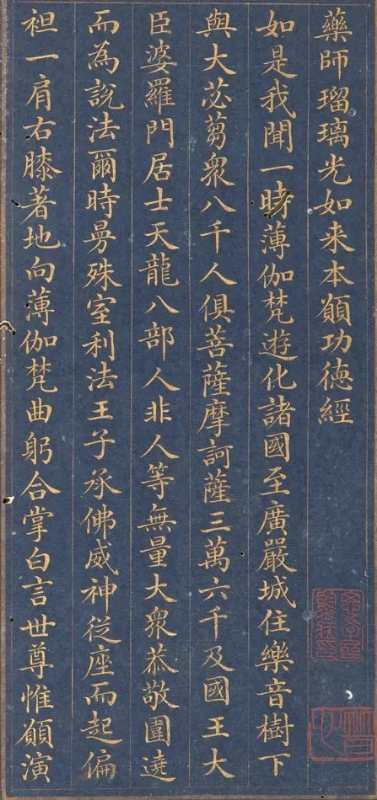 藥師瑠璃光如来本願功德經
如是我聞一時薄伽梵遊化諸國至廣嚴城住樂音樹下
與大苾蒭衆八千人俱菩薩摩訶薩三萬六千及國王大
臣婆羅門居士天龍八部人非人等無量大衆恭敬圍遶
而為說法爾時曼殊室利法王子承佛威神從座而起偏
袒一肩右膝著地向薄伽梵曲躬合掌白言世尊惟願演